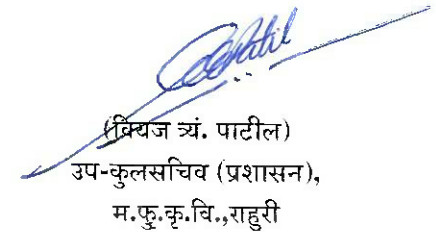 (विजय त्र्यं. पाटील)
उप-कुलसचिव (प्रशासन),
म.फु.कृ.वि.,राहुरी